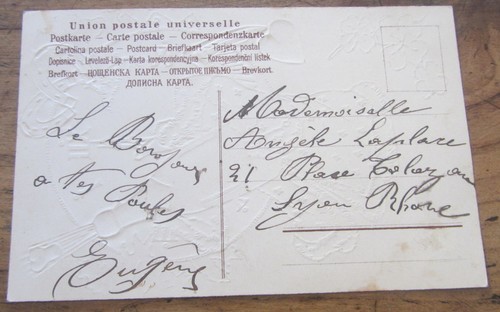 Union postale universelle
Postkarte – Carte postale – Correspondenzkarte
Cartolina postale – Postcard – Briefkaart – Tarjeta postal
Dopisnice – Levelező-Lap – Karta korrespondencyjna – Korespondenční lístek
Brefkort – ПОЩЕНСКА КАРТА – ОТКРЫТОЕ ПИСЬМО – Brevkort
ДОПИСНА КАРТА.
Le
a tes
Eugène
Mademoiselle
Angèle Laplace
21 Place
Lyon Rhone